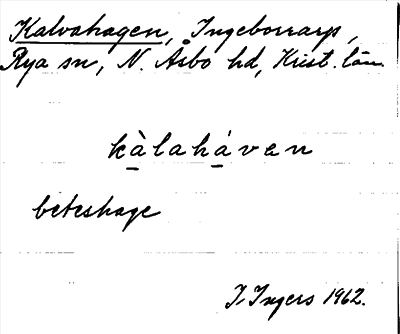 Kalvahagen, Ingeborrarp,
Rya sn, N. Åsbo hd, Krist. län
kàlaháven
beteshage
I. Ingers 1962.